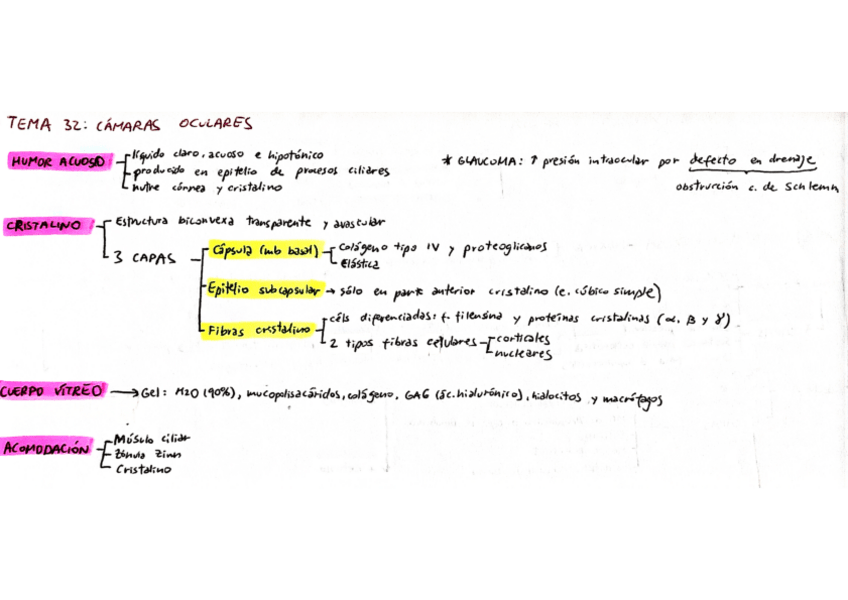 TEMA 32: CÁMARAS OCULARES
HUMOR ACUOSO
líquido claro, acuoso e hipotónico
producido en epitelio de procesos ciliares
nutre córnea y cristalino
* GLAUCOMA: ↑ presión intraocular por defecto en drenaje
obstrucción c. de Schlemn
CRISTALINO
Estructura biconvexa transparente y avascular
3 CAPAS
Cápsula (mb basal)
Colágeno tipo IV y proteoglicanos
Elástica
Epitelio subcapsular → sólo en parte anterior cristalino (e. cúbico simple)
Fibras cristalino
céls diferenciadas: f. filensina y proteínas cristalinas (α, β y γ)
2 tipos fibras celulares
corticales
nucleares
CUERPO VÍTREO → Gel: H2O (90%), mucopolisacáridos, colágeno, GAG (ác. hialurónico), hialocitos y macrófagos
ACOMODACIÓN
Músculo ciliar
Zónula Zinn
Cristalino